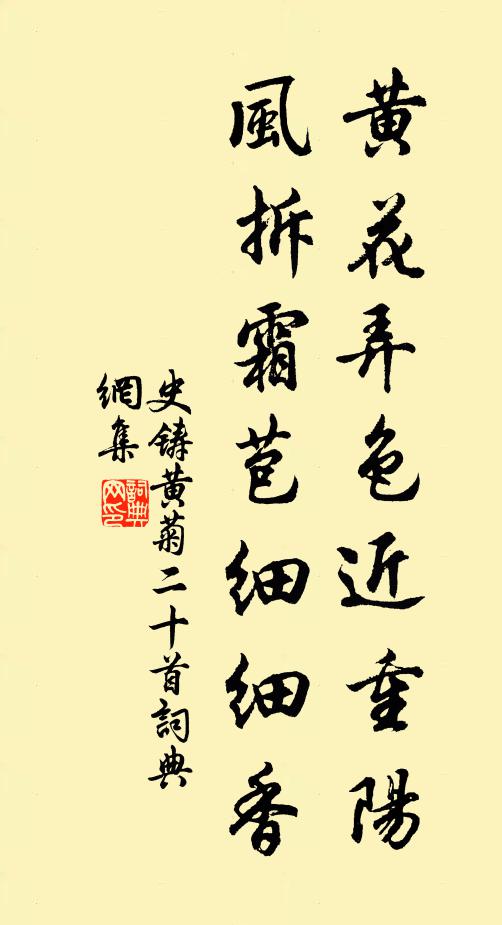 黄花弄色近重陽
風拆霜苞細細香
史鑄黄菊二十首詞典
網集
詞典
网印